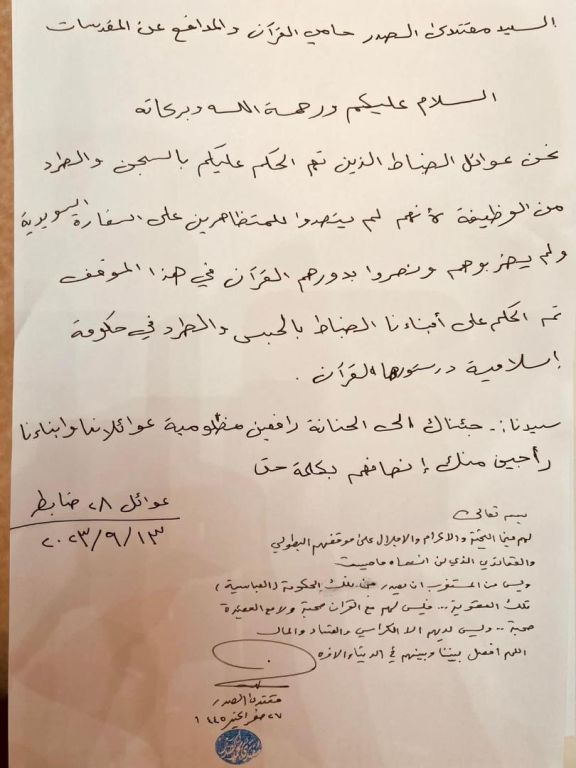 السيد مقتدى الصدر حامي القرآن والمدافع عن المقدسات
السلام عليكم ورحمة الله وبركاته
نحن عوائل الضباط الذين تم الحكم عليكم بالسجن والطرد
من الوظيفة لأنهم لم يتصدوا للمتظاهرين على السفارة السويدية
ولم يضربوهم ونصروا بدورهم القرآن في هذا الموقف
تم الحكم على أبناءنا الضباط بالحبس والطرد في حكومة
إسلامية دستورها القرآن .
سيدنا :. جئناك الى الحنانة رافعين مظلومية عوائلنا وابناءنا
راجين منك إنصافهم بكلمة حق
عوائل ٢٨ ضابط
٢٠٢٣/٩/١٣
بسمه تعالى
لهم منا التحية والاكرام والاجلال على موقفهم البطولي
والعقائدي الذي لن انساه ما حييت
وليس من المستغرب ان يصدر من تلك الحكومة (العباسية)
تلك العقوبة ... فليس لهم مع القران محبة ولا مع العقيدة
صحبة .. وليس لديهم الا الكراسي والفساد والمال
اللهم افصل بيننا وبينهم في الدنيا والاخرة
مقتدى الصدر
٢٧ صفر الخير ١٤٤٥